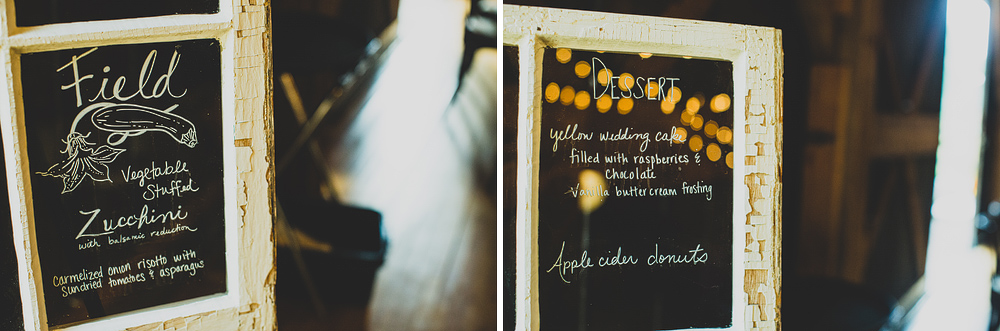 Field
Vegetable
Stuffed
Zucchini
with balsamic reduction
Carmelized onion risotto with
Sundried tomatoes & asparagus
Dessert
yellow wedding cake
filled with raspberries &
Chocolate
Vanilla buttercream frosting
Apple cider donuts